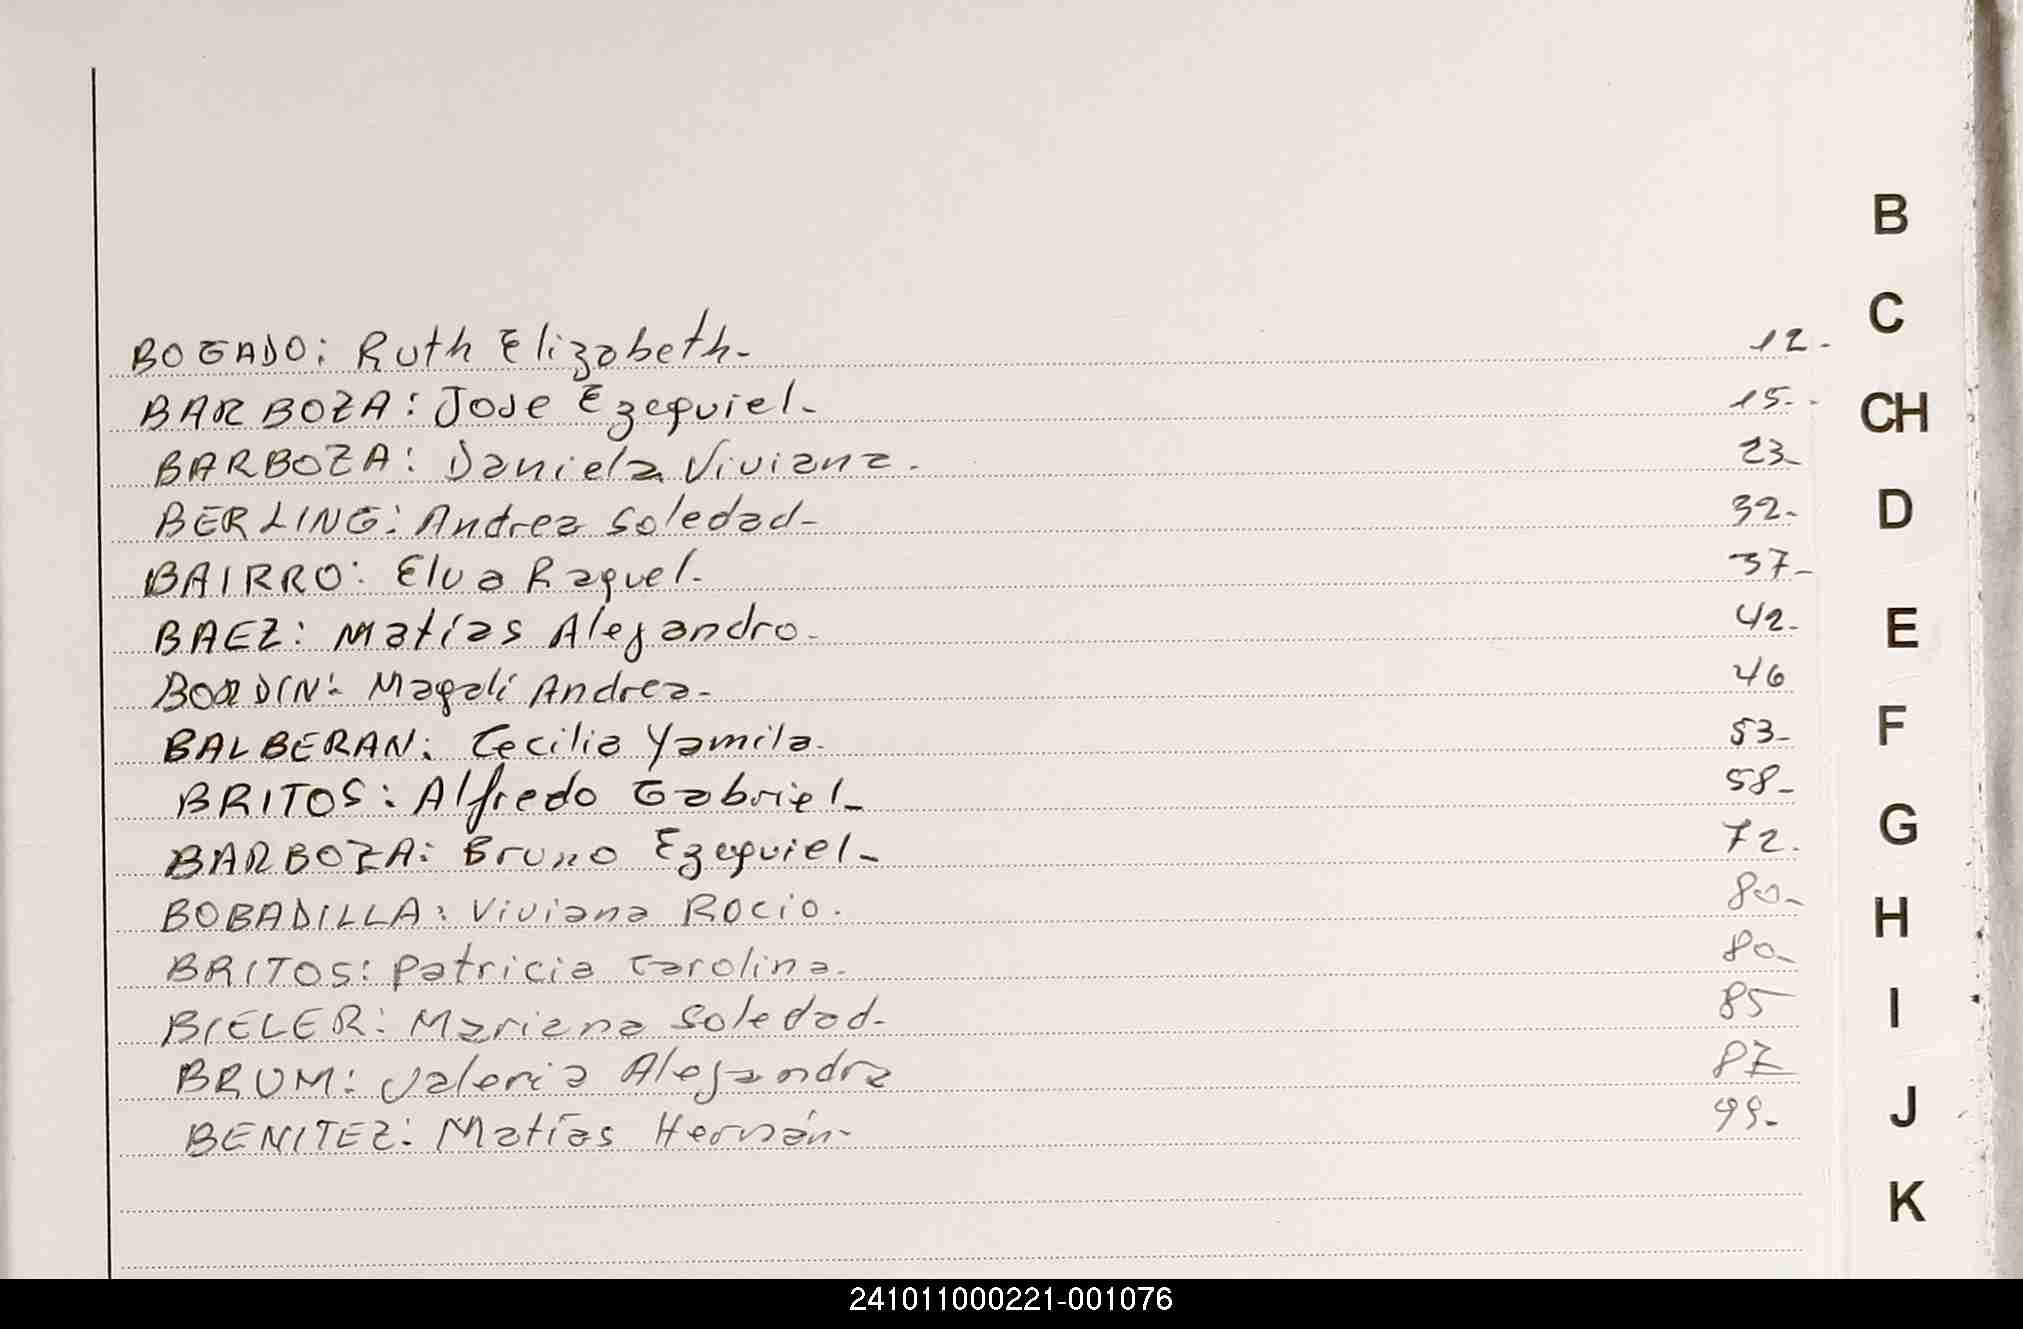 BOGADO: Ruth Elizabeth- 12-
BARBOZA: Jose Ezequiel- 15-
BARBOZA: Daniela Viviana. 23-
BERLING: Andrea Soledad- 32-
BAIRRO: Elva Raquel- 37-
BAEZ: Matías Alejandro- 42-
BORDIN: Magali Andrea- 46
BALBERAN: Cecilia Yamila- 53-
BRITOS: Alfredo Gabriel- 58-
BARBOZA: Bruno Ezequiel- 72.
BOBADILLA: Viviana Rocio. 80-
BRITOS: Patricia Carolina. 80-
BIELER: Mariana Soledad- 85
BRUM: Valeria Alejandra 87
BENITEZ: Matías Hernán- 99-
B
C
CH
D
E
F
G
H
I
J
K
241011000221-001076